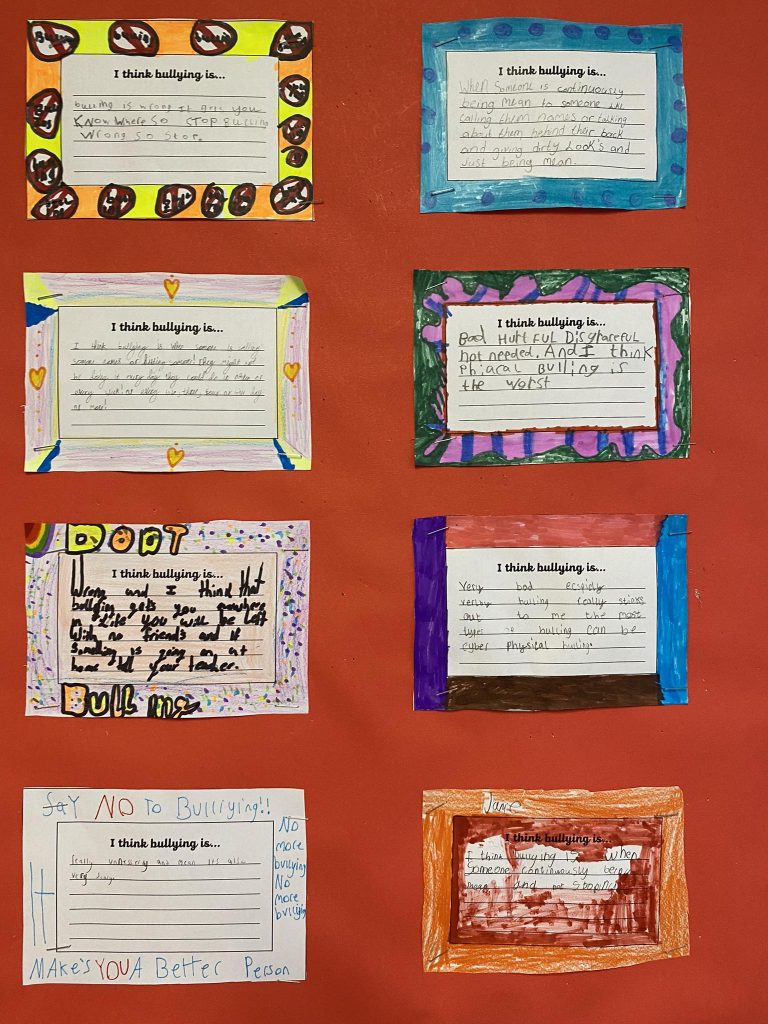 I think bullying is...
bulling is wrong It gets you
KNOW Where SO STOP Bulling
Wrong SO Stop.
I think bullying is...
When Someone is continuously
being mean to someone like
calling them names or talking
about them behond their back
and giving dirty Look's and
Just being mean.
I think bullying is...
I think bullying is when someone is calling
someone names or hitting someone! They might not
be doing it every day they could do it
every week no every
no more!
I think bullying is...
Bad HurtFUL DisgraceFul
not needed. And I think
Phiacal Bulling is
the worst
DOnT
I think bullying is...
Wrong and I think that
bullying gets you nowhere
in life you will be left
With no friends and if
Something is going on at
home tell your teacher.
Bull me
I think bullying is...
Very bad
verlby bulling really stinks
out to me the most
types of bulling can be
cyber physical bulling.
SaY NO To Bulliying!!
I think bullying is...
really and mean its also
very
No
more
bullying
No
more
bullying
It
MAke's YOU A Better Person
I think bullying is...
I think bullying is when
Someone continuously being
mean and not stoping